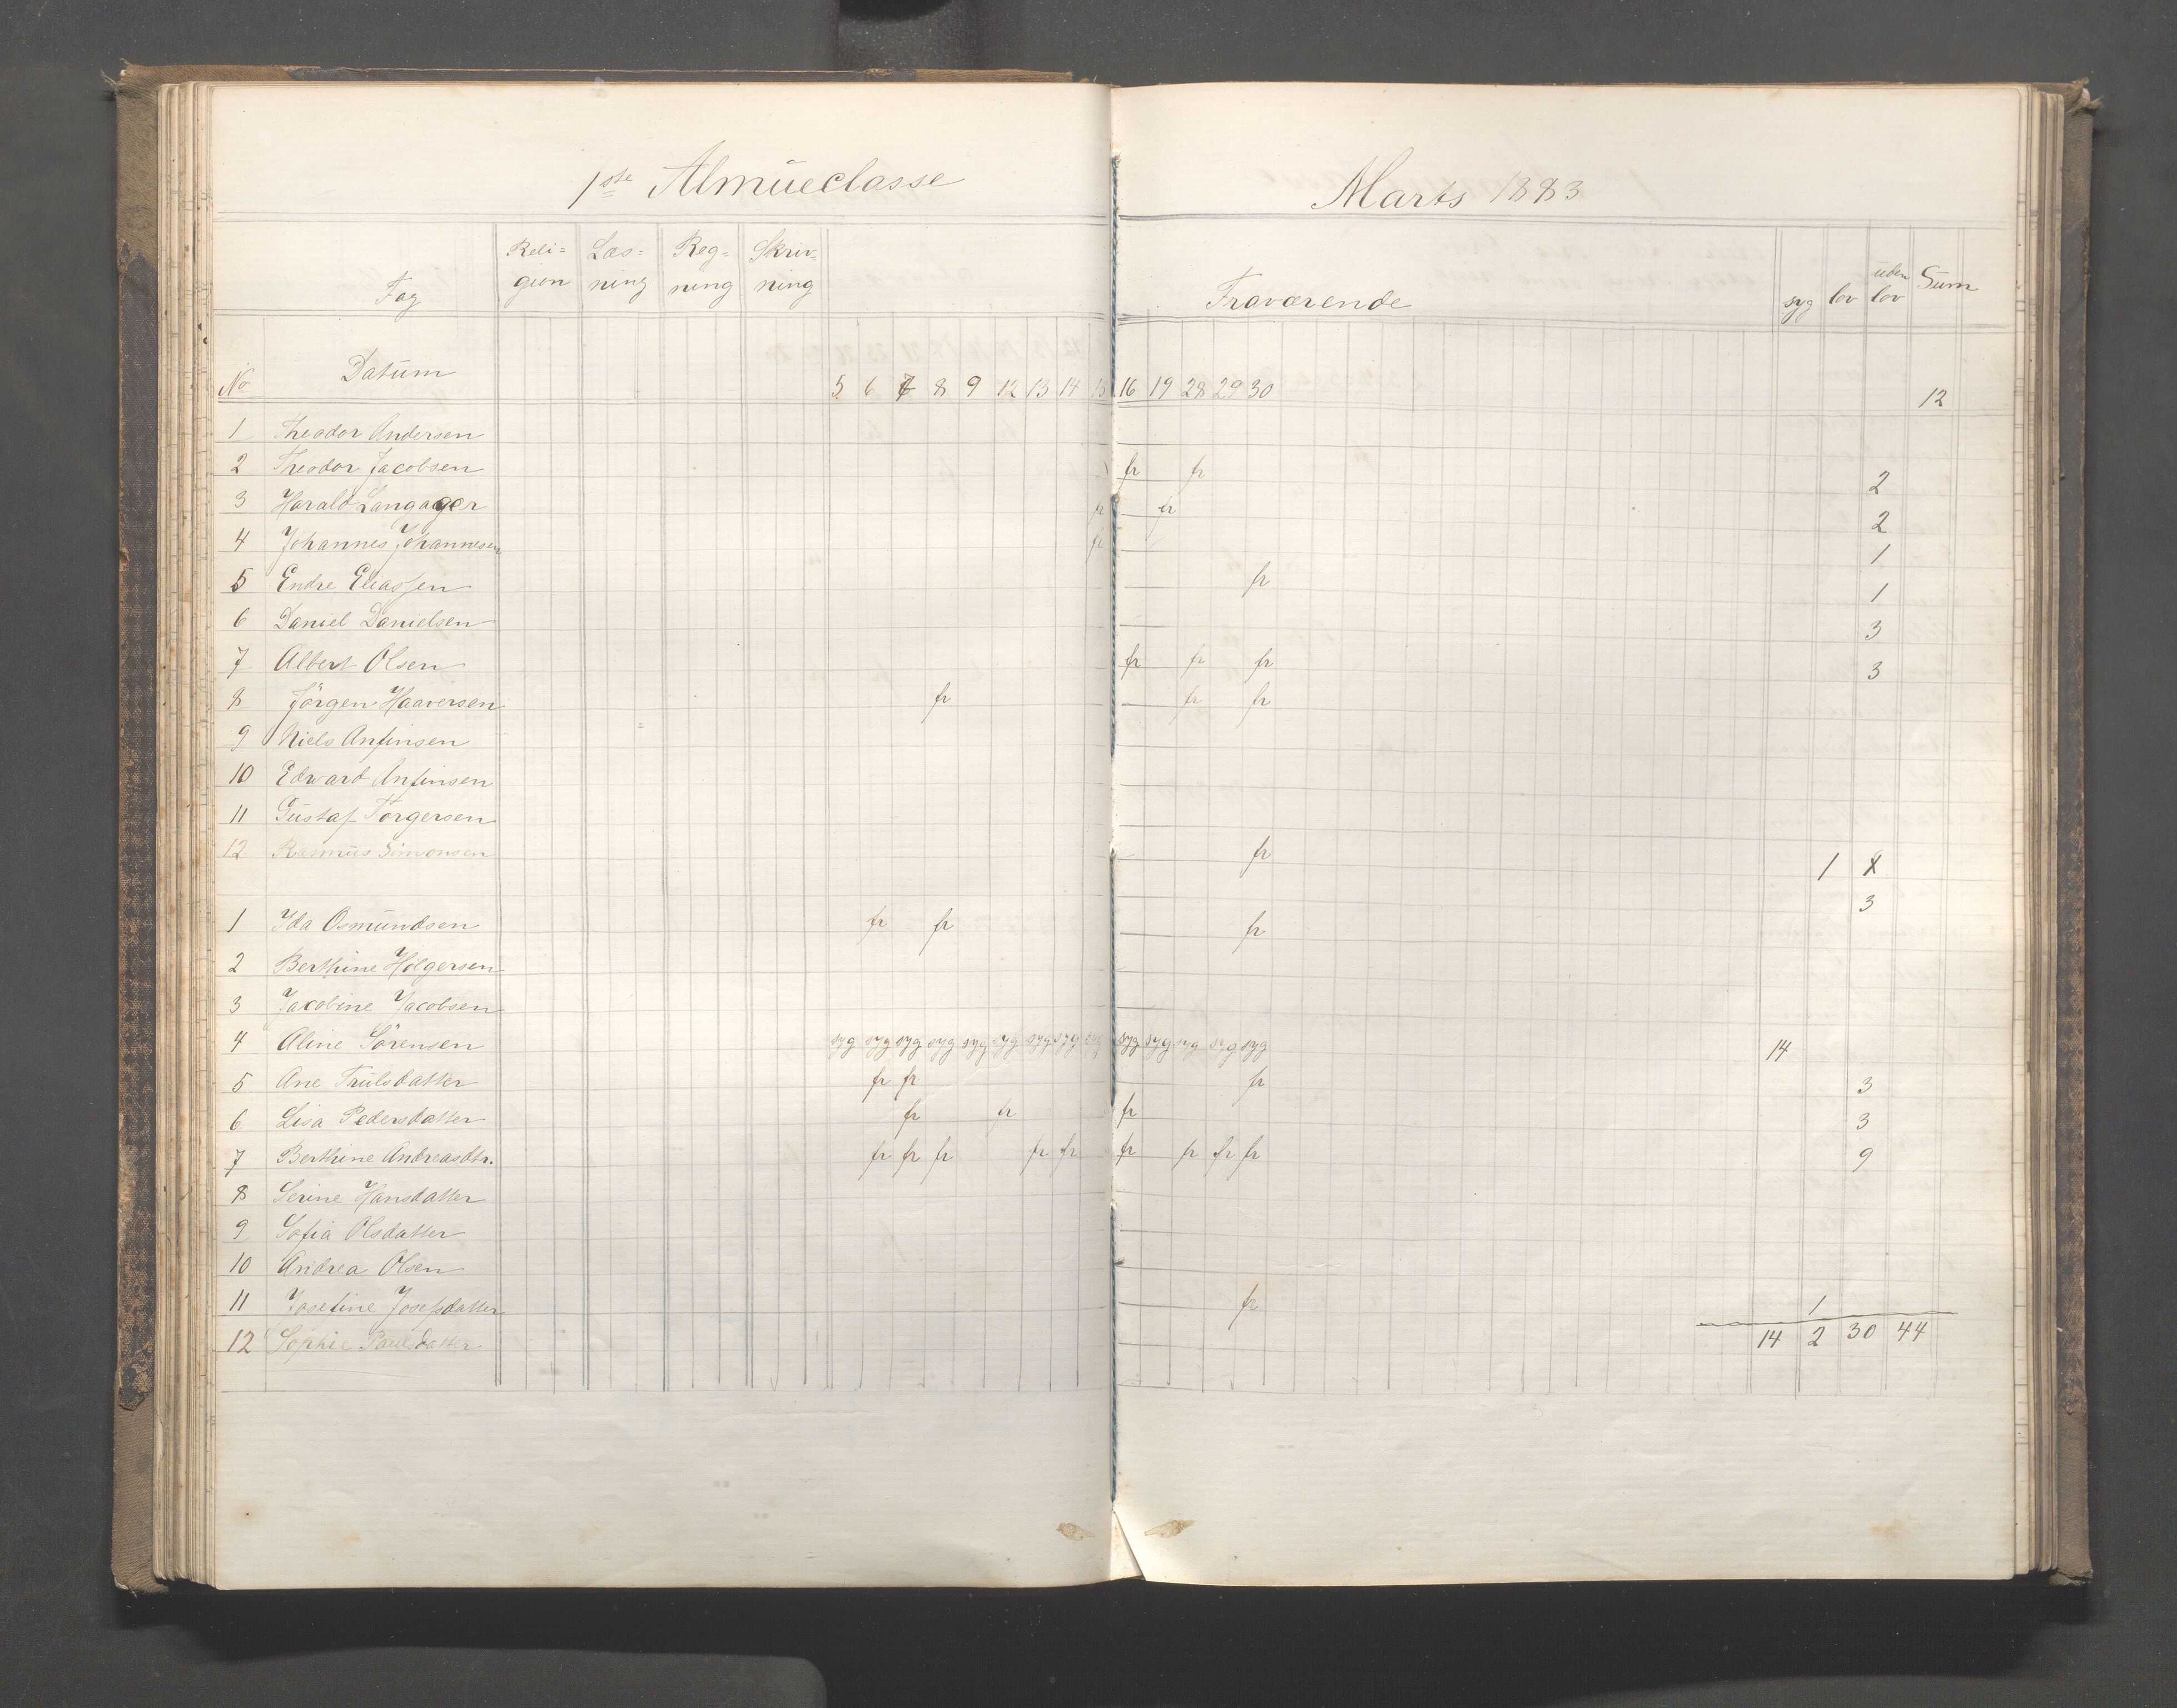 1ste Almueclasse
Marts 1883
Fag Reli= gion Læs= ning Reg= ning Skriv= ning Fraværende syg lov uden lov Sum
No Datum 5 6 7 8 9 12 13 14 15 16 19 28 29 30 12
1 Theodor Andersen
2 Theodor Jacobsen fr fr 2
3 Harald Langaager fr fr 2
4 Johannes Johannesen fr 1
5 Endre Eliassen fr 1
6 Daniel Danielsen 3
7 Albert Olsen fr fr fr 3
8 Jörgen Haaversen fr fr fr
9 Niels Anfinsen
10 Edward Anfinsen
11 Gustaf Torgersen
12 Rasmus Simonsen fr 1 X
1 Ida Osmundsen fr fr fr 3
2 Berthine Holgersen
3 Jacobine Jacobsen
4 Aline Sörensen syg syg syg syg syg syg syg syg syg syg syg syg syg syg 14
5 Ane Trulsdatter fr fr fr 3
6 Lisa Pedersdatter fr fr fr 3
7 Berthine Andreasdtr. fr fr fr fr fr fr fr fr fr 9
8 Serine Hansdatter
9 Sofia Olsdatter
10 Andrea Olsen
11 Josefine Josefsdatter fr 1
12 Sophie Paulsdatter 14 2 30 44